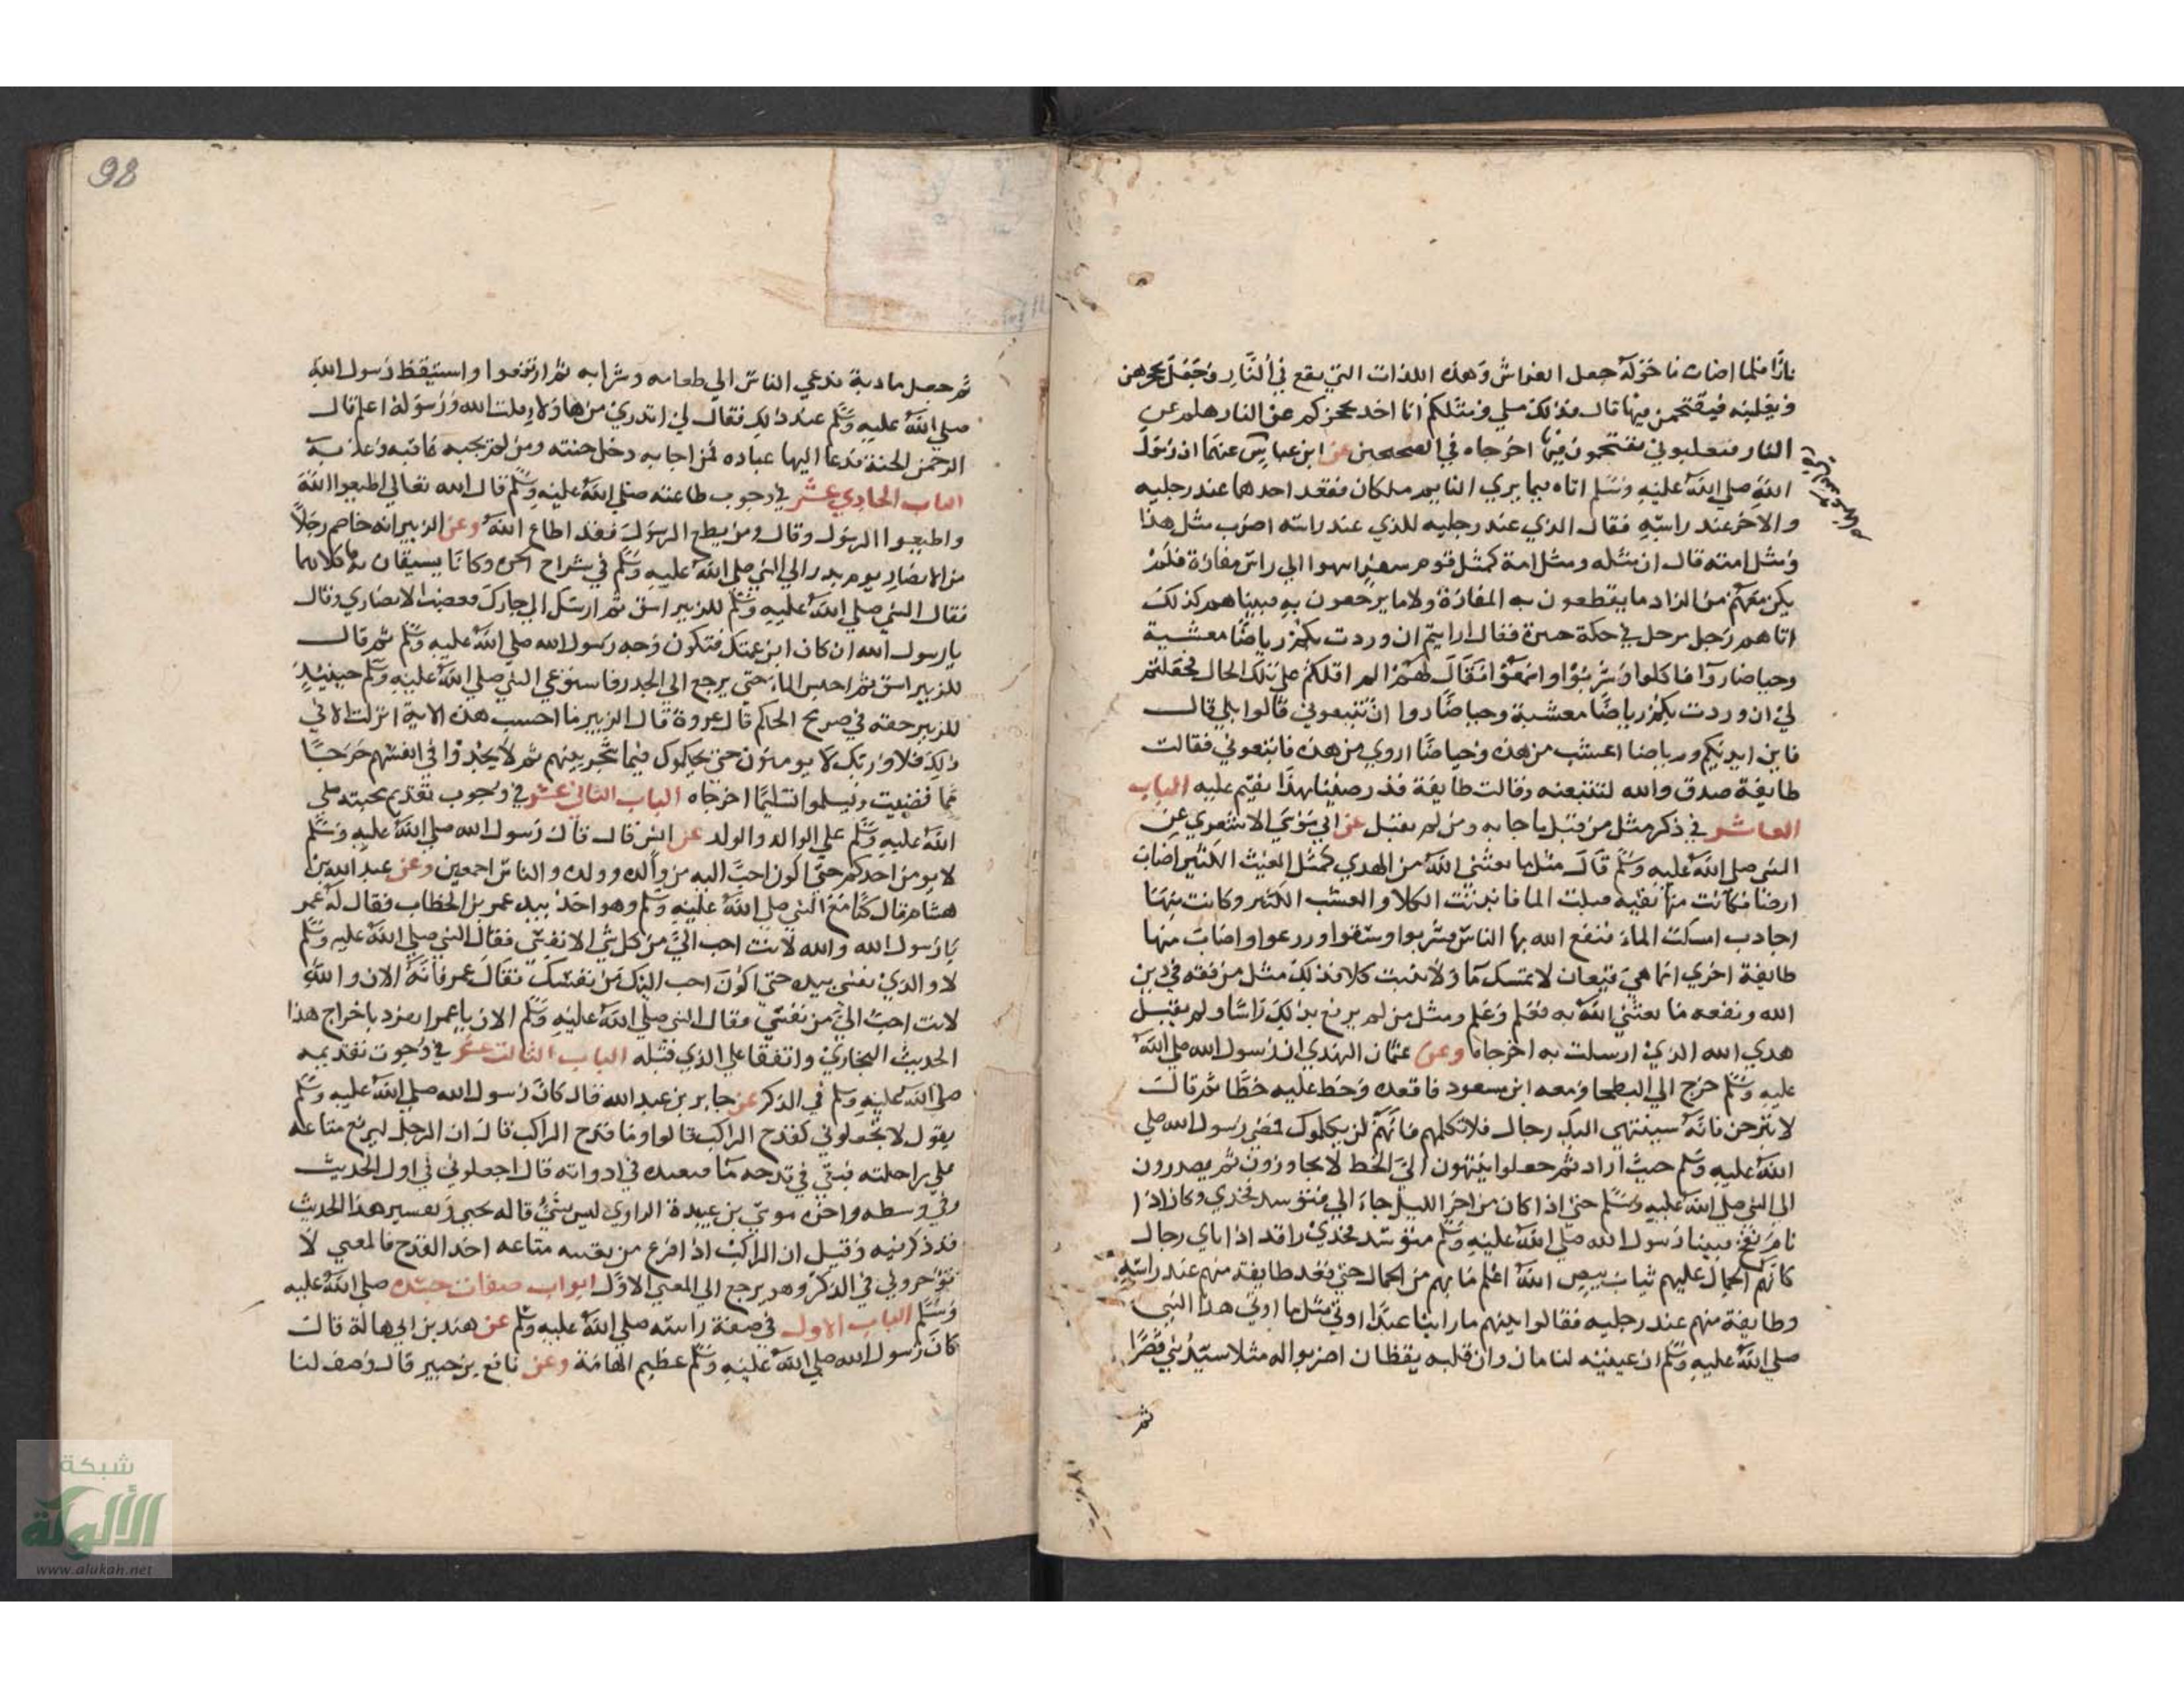 نارًا فلما اضات ما حوله جعل الفراش وهذه اللذات التي يقع في النار وجعل يحجزهن
ويغلبنه فيقتحمن فيها قال فذلك مثلي ومثلكم انا اخذ بحجزكم عن النار هلم عن
النار فتغلبوني تقتحمون فيها اخرجاه في الصحيحين عن ابن عباس عنهما ان رسول
الله صلي الله عليه وسلم اتاه فيما يري النايم ملكان فقعد احدهما عند رجليه
والاخر عند راسه فقال الذي عند رجليه للذي عند راسه اضرب مثل هذا
ومثل امته قال ان مثله ومثل امة كمثل قوم سفر انتهوا الي راس مفازة فلم
يكن معهم من الزاد ما يقطعون به المفازة ولا ما يرجعون به فبينا هم كذلك
اتاهم رجل مرجل في حلة حبرة فقال ارايتم ان وردت بكم رياضًا معشبة
وحياضا روآ فاكلوا وشربوا وسمنوا فقال لهم الم القكم علي تلك الحال فجعلتم
لي ان وردت بكم رياضًا معشبة وحياضًا روا ان تتبعوني قالوا بلي قال
فان بين ايديكم رياضا اعشب من هذه وحياضًا اروي من هذه فاتبعوني فقالت
طايفة صدق والله لنتبعنه وقالت طايفة قد رضينا بهذا نقيم عليه الباب
العاشر في ذكر مثل من قبل ما جا به ومن لم يقبل عن ابي موسي الاشعري عن
النبي صلي الله عليه وسلم قال مثل ما بعثني الله من الهدي كمثل الغيث الكثير اصاب
ارضا فكانت منها نقيه قبلت الما فانبتت الكلا والعشب الكثير وكانت منها
اجادب امسكت الماء فنفع الله بها الناس فشربوا وسقوا وزرعوا واصاب منها
طايفة اخري انما هي قيعان لا تمسك مآ ولا تنبت كلا فذلك مثل من فقه في دين
الله ونفعه ما بعثني الله به فعلم وعلم ومثل من لم يرفع بذلك راسًا ولم يقبل
هدي الله الذي ارسلت به اخرجاه وعن عثمان النهدي ان رسول الله صلي الله
عليه وسلم خرج الي البطحا ومعه ابن مسعود فاقعده وخط عليه خطًا ثم قال
لا تبرحن فانه سينتهي اليك رجال فلا تكلمهم فانهم لن يكلموك فمضي رسول الله صلي
الله عليه وسلم حيث اراد ثم جعلوا ينتهون الي الخط لا يجاوزون ثم يصدرون
الي النبي صلي الله عليه وسلم حتي اذا كان من اخر الليل جاء الي فتوسد فخذي وكان اذا
نام نفخ فبينا رسول الله صلي الله عليه وسلم متوسد فخذي راقد اذا باي رجال
كانهم الجمال عليهم ثياب بيض الله اعلم ما بهم من الجمال حتي قعد طايفة منهم عند راسه
وطايفة منهم عند رجليه فقالوا بينهم ما راينا عبدًا اوتي مثل ما اوتي هذا النبي
صلي الله عليه وسلم ان عينيه لنامان وان قلبه يقظان اضربوا له مثلا سيد بني قصرًا
ثم
98
ثم جعل مادبة فدعي الناس الي طعامه وشرابه ثم ارتفعوا واستيقظ رسول الله
صلي الله عليه وسلم عند ذلك فقال لي اتدري من هاولاء قلت الله ورسوله اعلم قال
الرحمن الجنة فدعا اليها عباده فمن اجابه دخل جنته ومن لم يجبه عاقبه وعذبه
الباب الحادي عشر في وجوب طاعته صلي الله عليه وسلم قال الله تعالي اطيعوا الله
واطيعوا الرسول وقال ومن يطع الرسول فقد اطاع الله وعن الزبير انه خاصم رجلاً
من الانصار يوم بدر الي النبي صلي الله عليه وسلم في شراح الحرة وكانا يسقيان به كلاهما
فقال النبي صلي الله عليه وسلم للزبير اسق ثم ارسل الي جارك فغضب الانصاري وقال
يا رسول الله ان كان ابن عمتك فتلون وجه رسول الله صلي الله عليه وسلم ثم قال
للزبير اسق ثم احبس الماء حتي يرجع الي الجدر فاستوعي النبي صلي الله عليه وسلم حينيذ
للزبير حقه في صريح الحكم قال عروة قال الزبير ما احسب هذه الاية انزلت الا في
ذلك فلا وربك لا يومنون حتي يحكموك فيما شجر بينهم ثم لا يجدوا في انفسهم حرجًا
مما قضيت ويسلموا تسليمًا اخرجاه الباب الثاني عشر في وجوب تقديم محبته صلي
الله عليه وسلم علي الوالد والولد عن انس قال قال رسول الله صلي الله عليه وسلم
لا يومن احدكم حتي اكون احب اليه من والده وولده والناس اجمعين وعن عبد الله بن
هشام قال كنا مع النبي صلي الله عليه وسلم وهو اخذ بيد عمر بن الخطاب فقال له عمر
يا رسول الله والله لانت احب الي من كل شي الا نفسي فقال النبي صلي الله عليه وسلم
لا والذي نفسي بيده حتي اكون احب اليك من نفسك فقال عمر فانه الان والله
لانت احب الي من نفسي فقال النبي صلي الله عليه وسلم الان يا عمر انفرد باخراج هذا
الحديث البخاري واتفقا علي الذي قبله الباب الثالث عشر في وجوب تقديمه
صلي الله عليه وسلم في الذكر عن جابر بن عبد الله قال كان رسول الله صلي الله عليه وسلم
يقول لا تجعلوني كقدح الراكب قالوا وما قدح الراكب قال ان الرجل ليرفع متاعه
علي راحلته فيبقي في قدحه مآ فيعيده في ادواته قال اجعلوني في اول الحديث
وفي وسطه واخره موسي بن عبيدة الراوي ليس بشي قاله يحيي وتفسير هذا الحديث
قد ذكر فيه وقيل ان الراكب اذا افرغ من تعبيه متاعه اخذ القدح فالمعني لا
تؤخروني في الذكر وهو يرجع الي المعني الاول ابواب صفات جسده صلي الله عليه
وسلم الباب الاول في صفة راسه صلي الله عليه وسلم عن هند بن ابي هالة قال
كان رسول الله صلي الله عليه وسلم عظيم الهامة وعن نافع بن جبير قال وصف لنا
شبكة
الألوكة
www.alukah.net